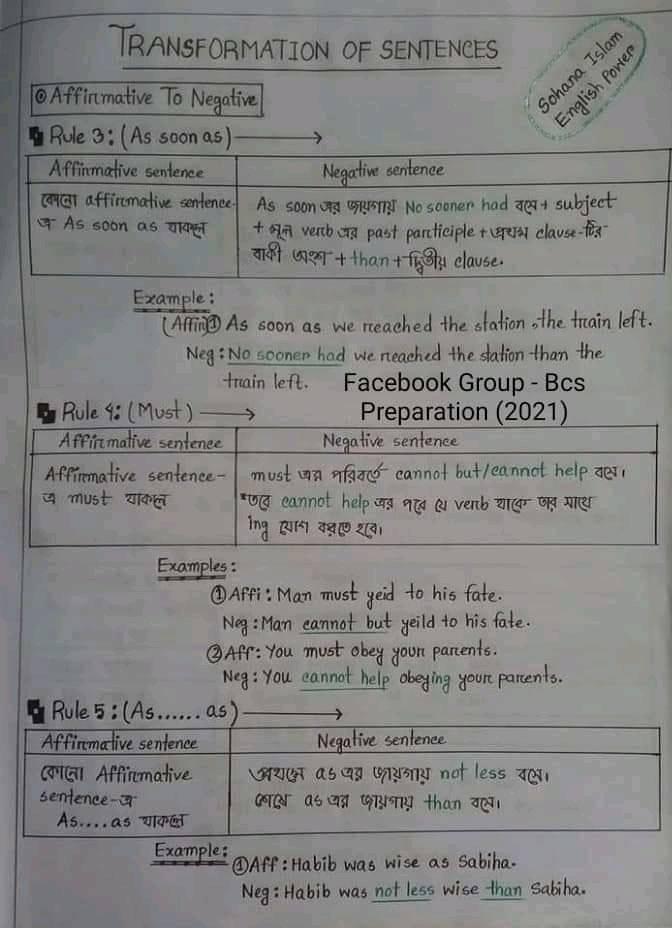 TRANSFORMATION OF SENTENCES
Sohana Islam
English Power
Affirmative To Negative
Rule 3: (As soon as)
Affirmative sentence
Negative sentence
কোনো affirmative sentence-
এ As soon as থাকলে
As soon এর জায়গায় No sooner had বসে + subject
+ মূল verb এর past participle + প্রথম clause-টির
বাকী অংশ + than + দ্বিতীয় clause.
Example:
(Affir)① As soon as we reached the station, the train left.
Neg: No sooner had we reached the station than the
train left.
Facebook Group - Bcs
Preparation (2021)
Rule 4: (Must)
Affirmative sentence
Negative sentence
Affirmative sentence-
এ must থাকলে
must এর পরিবর্তে cannot but/cannot help বসে।
*তবে cannot help এর পরে যে verb থাকে তার সাথে
ing যোগ করতে হবে।
Examples:
① Affi: Man must yeid to his fate.
Neg: Man cannot but yeild to his fate.
② Aff: You must obey your parents.
Neg: You cannot help obeying your parents.
Rule 5: (As...... as)
Affirmative sentence
Negative sentence
কোনো Affirmative
sentence-এ
As....as থাকলে
প্রথমে as এর জায়গায় not less বসে।
শেষে as এর জায়গায় than বসে।
Example:
① Aff: Habib was wise as Sabiha.
Neg: Habib was not less wise than Sabiha.